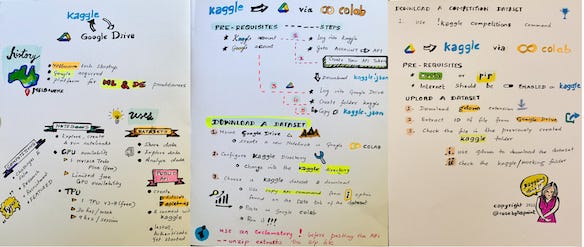 kaggle
Google Drive
history
Melbourne tech startup
Google acquired
platform for ML & DS practitioners
MELBOURNE
uses
NOTEBOOKS
Explore, create
& run notebooks
GPU availability
Limited free
GPU availability
TPU
30 hrs/week
9 hrs/session
DATASETS
Share data
Explore data
Analyze data
PUBLIC API
Create
datasets
notebooks
& connect with
kaggle
Install,
Authenticate
Get started
kaggle via colab
PRE-REQUISITES
STEPS
Kaggle account
Google account
Log into kaggle
Goto Account API
Create New API Token
Download kaggle.json
Log into Google Drive
Create folder kaggle
Copy kaggle.json
DOWNLOAD A DATASET
1 Mount Google Drive
Create a new Notebook in Google COLAB
2 Configure Kaggle Directory
Change into the kaggle directory
3 Choose a kaggle dataset & download
Use copy API command from option
found on the Data tab of the dataset
Paste in Google colab
Run it !!!
Use an exclamatory ! before pasting the API
--unzip extracts the zip file
DOWNLOAD A COMPETITION DATASET
1. Use !kaggle competitions command
kaggle via colab
PRE-REQUISITES
pip
Internet should be ENABLED on kaggle
UPLOAD A DATASET
1 Download gdown extension
2 Extract ID of file from Google Drive
3 Check the file in the previously created
kaggle folder
Use gdown to download the dataset
Check the kaggle/working folder
copyright